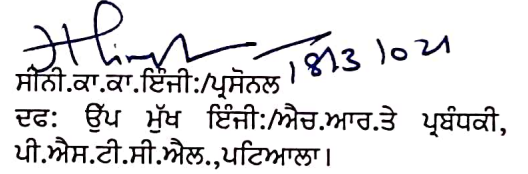 18/3/2021
ਸੀਨੀ.ਕਾ.ਕਾ.ਇੰਜੀ:/ਪ੍ਰਸੋਨਲ
ਦਫ: ਉੱਪ ਮੁੱਖ ਇੰਜੀ:/ਐਚ.ਆਰ.ਤੇ ਪ੍ਰਬੰਧਕੀ,
ਪੀ.ਐਸ.ਟੀ.ਸੀ.ਐਲ.,ਪਟਿਆਲਾ।